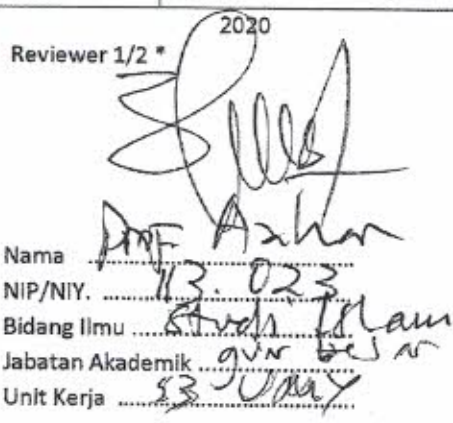 2020
Reviewer 1/2 *
Nama Prof Azhar
NIP/NIY. 113.023
Bidang Ilmu Studi Islam
Jabatan Akademik gur besar
Unit Kerja S3